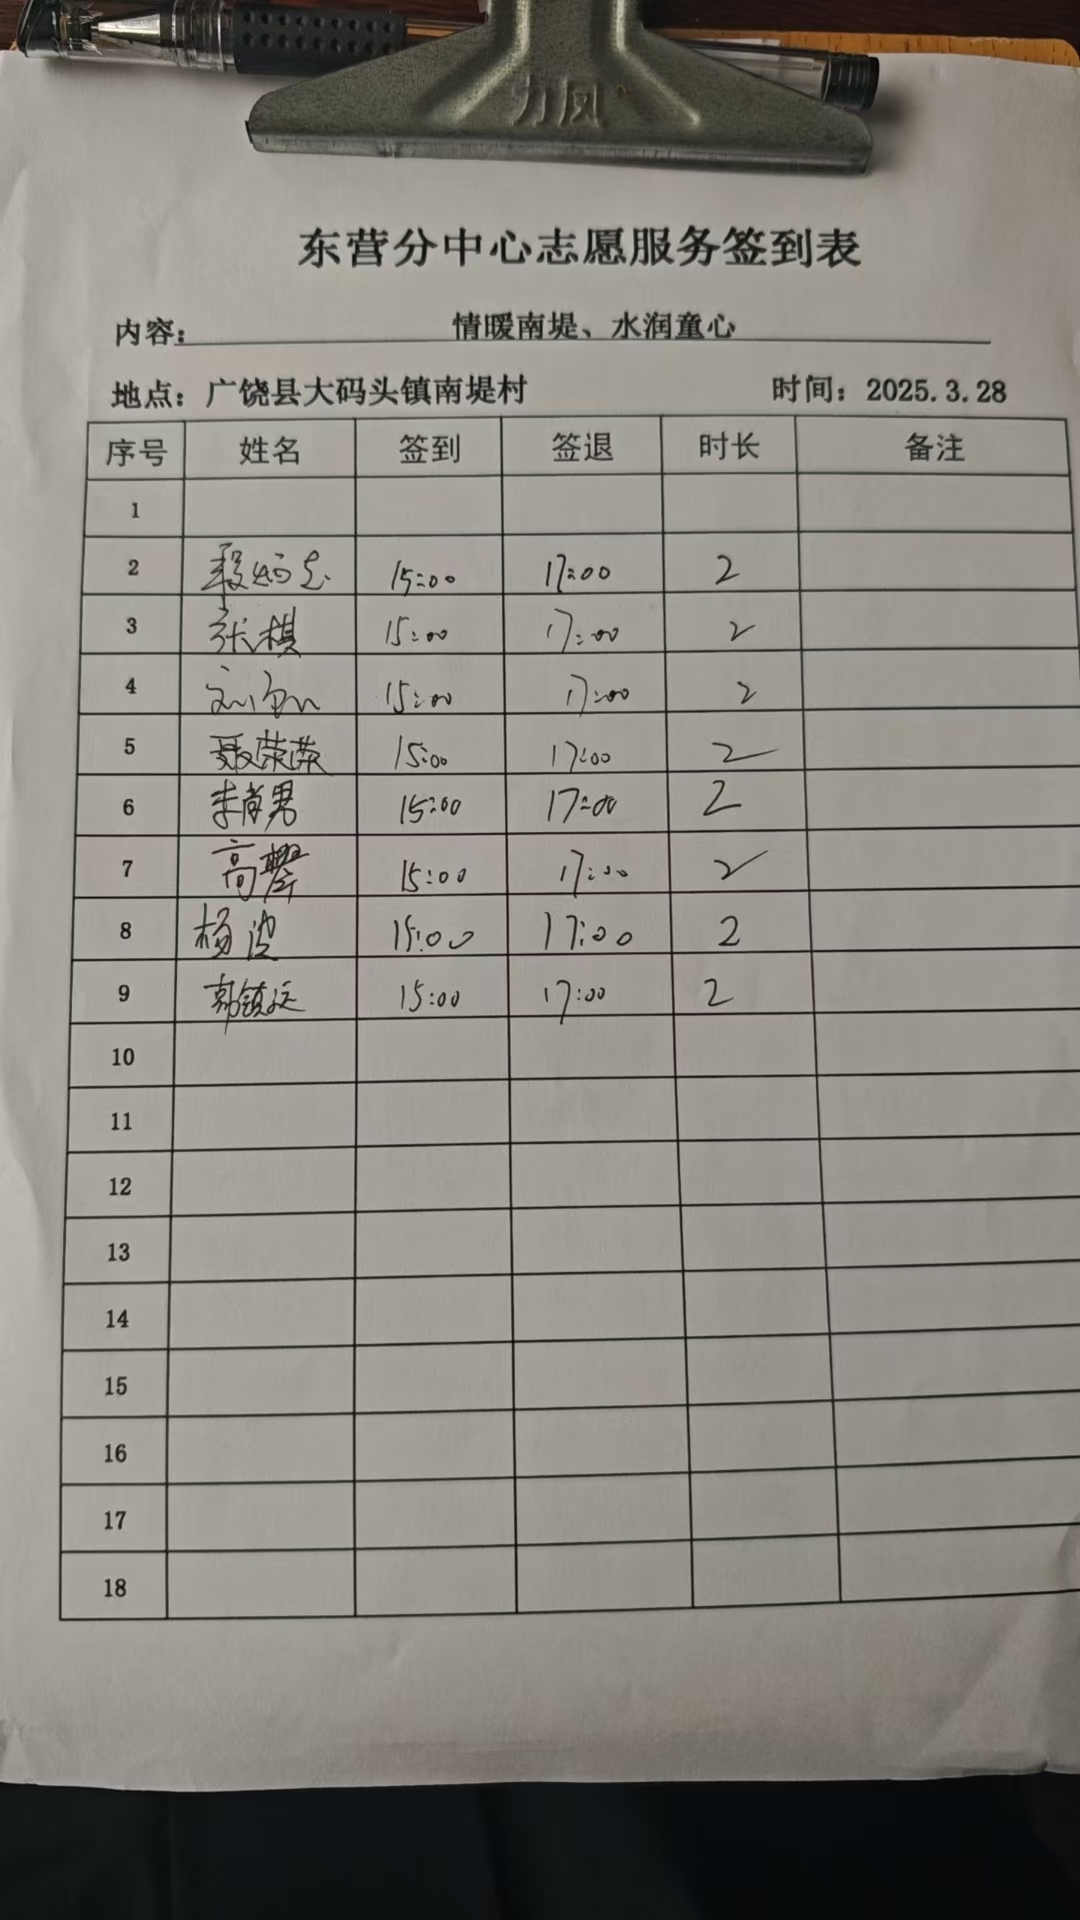 力风
东营分中心志愿服务签到表
内容: 情暖南堤、水润童心
地点: 广饶县大码头镇南堤村 时间: 2025.3.28
序号 姓名 签到 签退 时长 备注
1
2 15:00 17:00 2
3 张棋 15:00 17:00 2
4 15:00 17:00 2
5 聂荣荣 15:00 17:00 2
6 李肖男 15:00 17:00 2
7 高 15:00 17:00 2
8 杨波 15:00 17:00 2
9 郭镇远 15:00 17:00 2
10
11
12
13
14
15
16
17
18